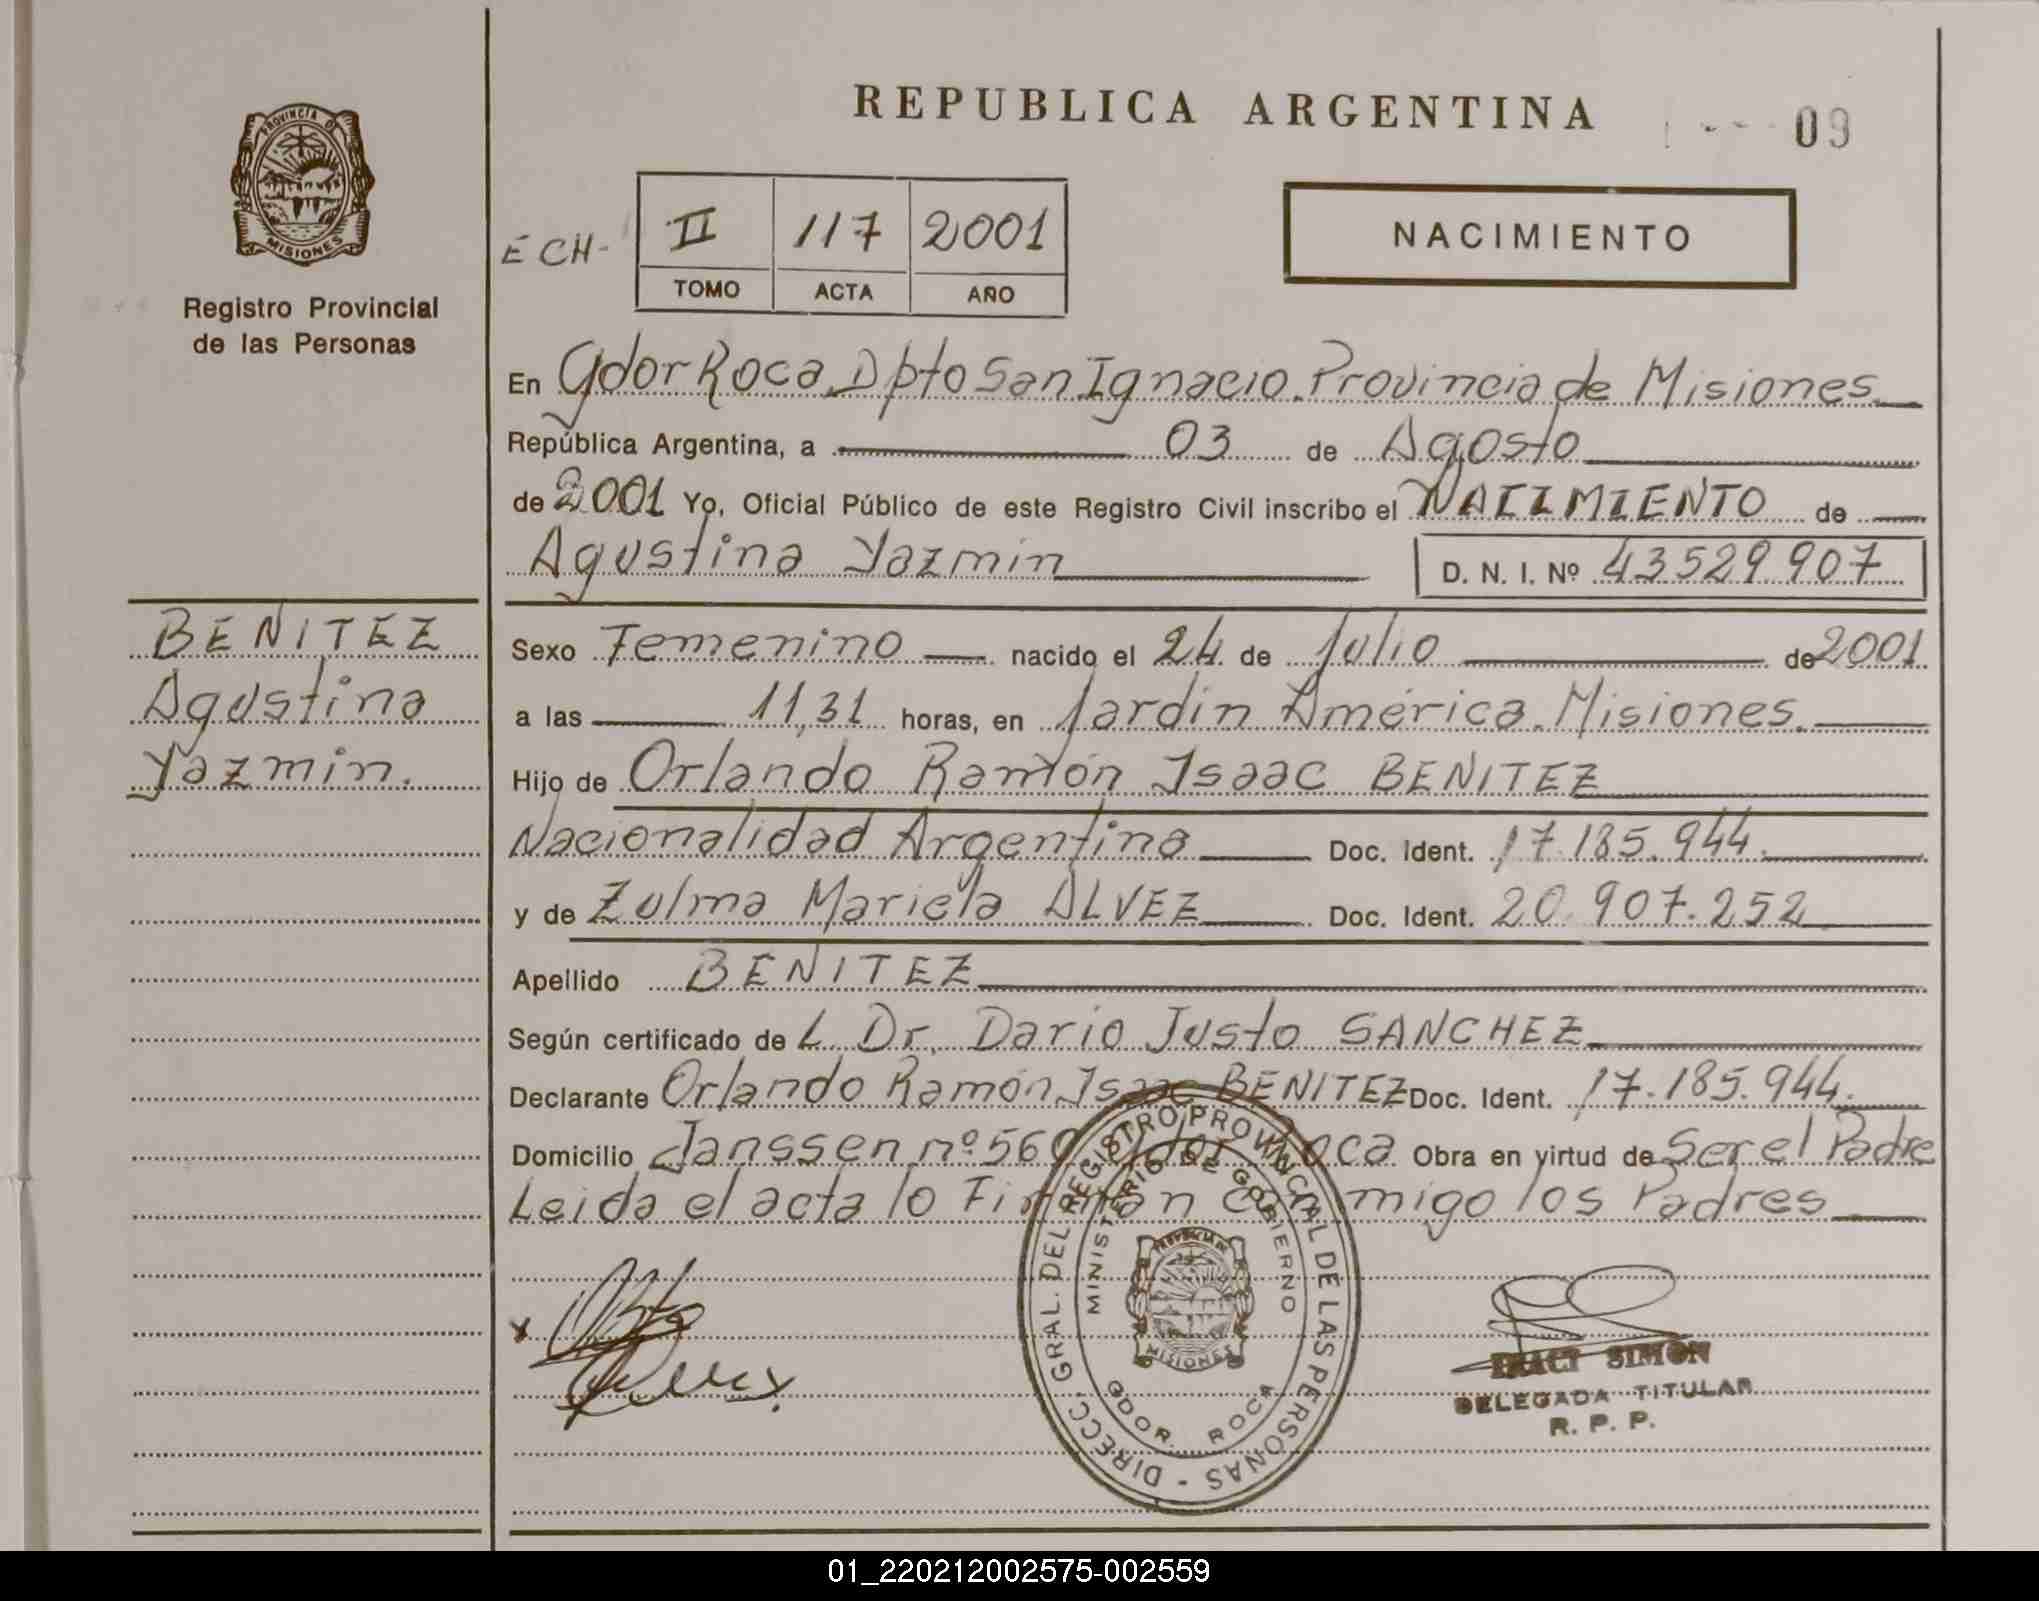 REPUBLICA ARGENTINA
09
PROVINCIA DE
MISIONES
Registro Provincial
de las Personas
ECH-
II 117 2001
TOMO ACTA AÑO
NACIMIENTO
En Gdor Roca Dpto San Ignacio. Provincia de Misiones
República Argentina, a 03 de Agosto
de 2001 Yo, Oficial Público de este Registro Civil inscribo el NACIMIENTO de
Agustina Yazmin D. N. I. Nº 43529907
BENITEZ
Agustina
Yazmin.
Sexo Femenino nacido el 24 de Julio de 2001
a las 11,31 horas, en Jardín América. Misiones.
Hijo de Orlando Ramón Isaac BENITEZ
Nacionalidad Argentina Doc. Ident. 17.185.944
y de Zulma Mariela ALVEZ Doc. Ident. 20.907.252
Apellido BENITEZ
Según certificado de L. Dr. Dario Justo SANCHEZ
Declarante Orlando Ramón Isaac BENITEZ Doc. Ident. 17.185.944.
Domicilio Janssen nº 560 Gdor Roca Obra en virtud de Ser el Padre
Leida el acta lo Firman conmigo los Padres
DIRECC. GRAL. DEL REGISTRO PROVINCIAL DE LAS PERSONAS -
MINISTERIO DE GOBIERNO
PROVINCIA DE
MISIONES
GDOR. ROCA
x
SIMON
DELEGADA TITULAR
R. P. P.
01_220212002575-002559